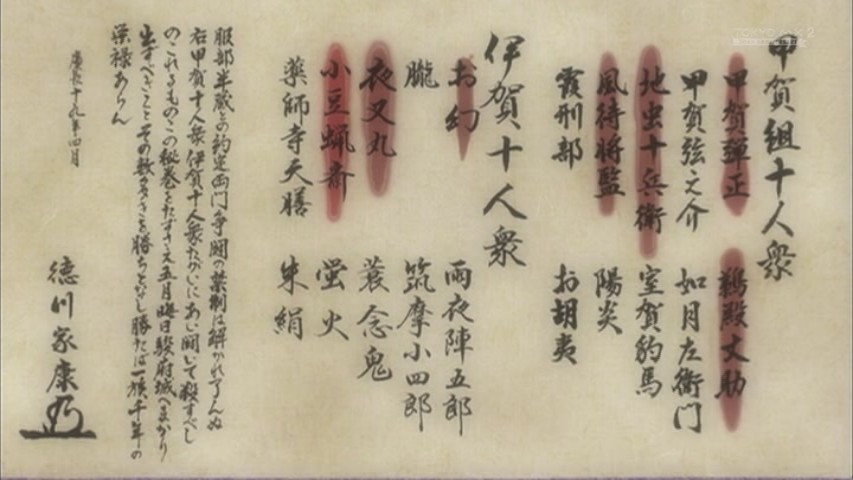 甲賀組十人衆
甲賀弾正
甲賀弦之介
地虫十兵衛
風待将監
霞刑部
鵜殿丈助
如月左衛門
室賀豹馬
陽炎
お胡夷
伊賀十人衆
お幻
朧
夜叉丸
小豆蝋斎
薬師寺天膳
雨夜陣五郎
筑摩小四郎
蓑念鬼
蛍火
朱絹
服部半蔵との約定両門争闘の禁制は解かれ了んぬ
右甲賀十人衆伊賀十人衆たがいにあい闘いて殺すべし
のこれるものこの秘巻をたずさえ五月晦日駿府城へまかり
出ずべきことその数多きを勝ちとなし勝たば一族千年の
栄禄あらん
慶長十九年四月
徳川家康